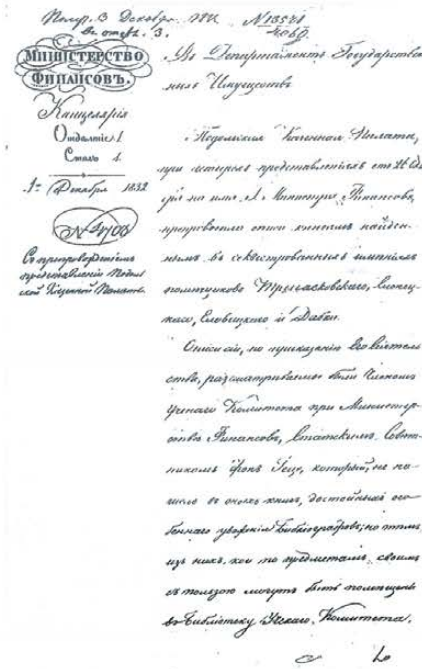 Получ. 3 Декабр. 1832 № 13581
МИНИСТЕРСТВО
ФИНАНСОВЪ.
Канцелярія
Отдѣленіе 1
Столъ 1.
1го Декабря 1832
№ 4708
Съ препровожденіемъ
представленія Подоль
ской Казенной Палаты.
Въ Департаментъ Государствен
ныхъ Имуществъ
Подольская Казенная Палата,
при представленіяхъ отъ
на имя г. Министра Финансовъ,
препроводила описи книгамъ найден
нымъ въ секвестрованныхъ имѣніяхъ
помѣщиковъ
и Дабки.
Описи сіи, по приказанію Его Сіятель
ства, разсматриваемы были Членомъ
Ученаго Комитета при Министер
ствѣ Финансовъ, Статскимъ Совѣт
никомъ фонъ Геце, который, не на
шелъ въ оныхъ книгъ, достойныхъ осо
беннаго уваженія Библіографовъ; но тѣмъ
изъ нихъ, кои по предметамъ своимъ
съ пользою могутъ быть помѣщены
въ Библіотеку Ученаго Комитета,